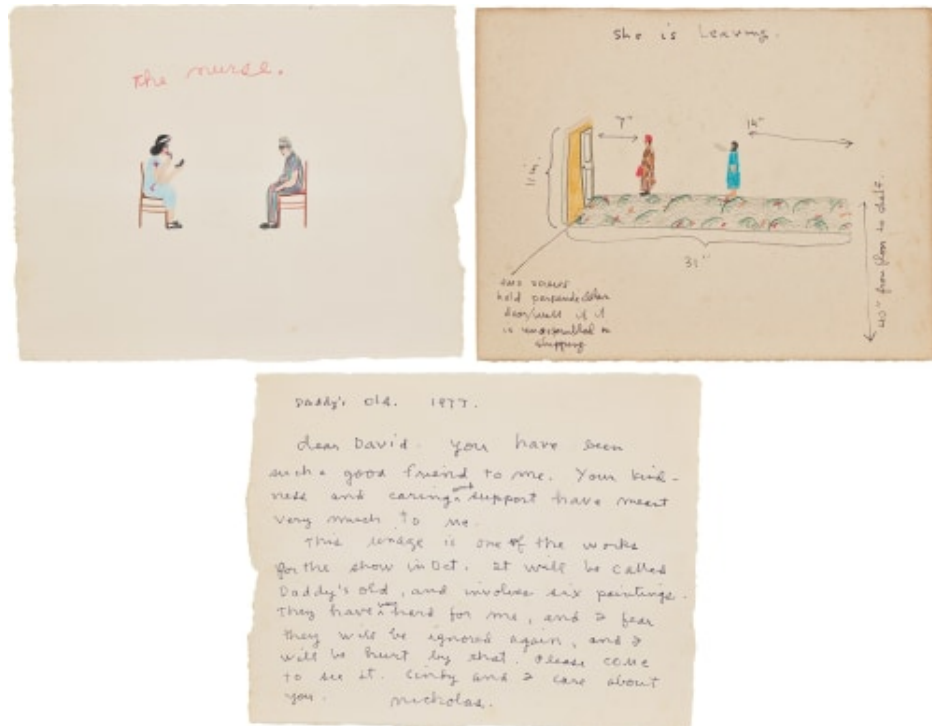 The nurse.
She is Leaving.
7"
14"
11 in.
31"
40" from floor to shelf.
two
hold perpendicular
door/wall if it
is unassembled in
shipping
Daddy's old. 1977.
dear David. You have been
such a good friend to me. Your kind-
ness and caring and support have meant
very much to me.
This image is one of the works
for the show in Oct. It will be called
Daddy's old, and involves six paintings.
They have hard for me, and I fear
they will be ignored again, and I
will be hurt by that. Please come
to see it. Cindy and I care about
you. nicholas.